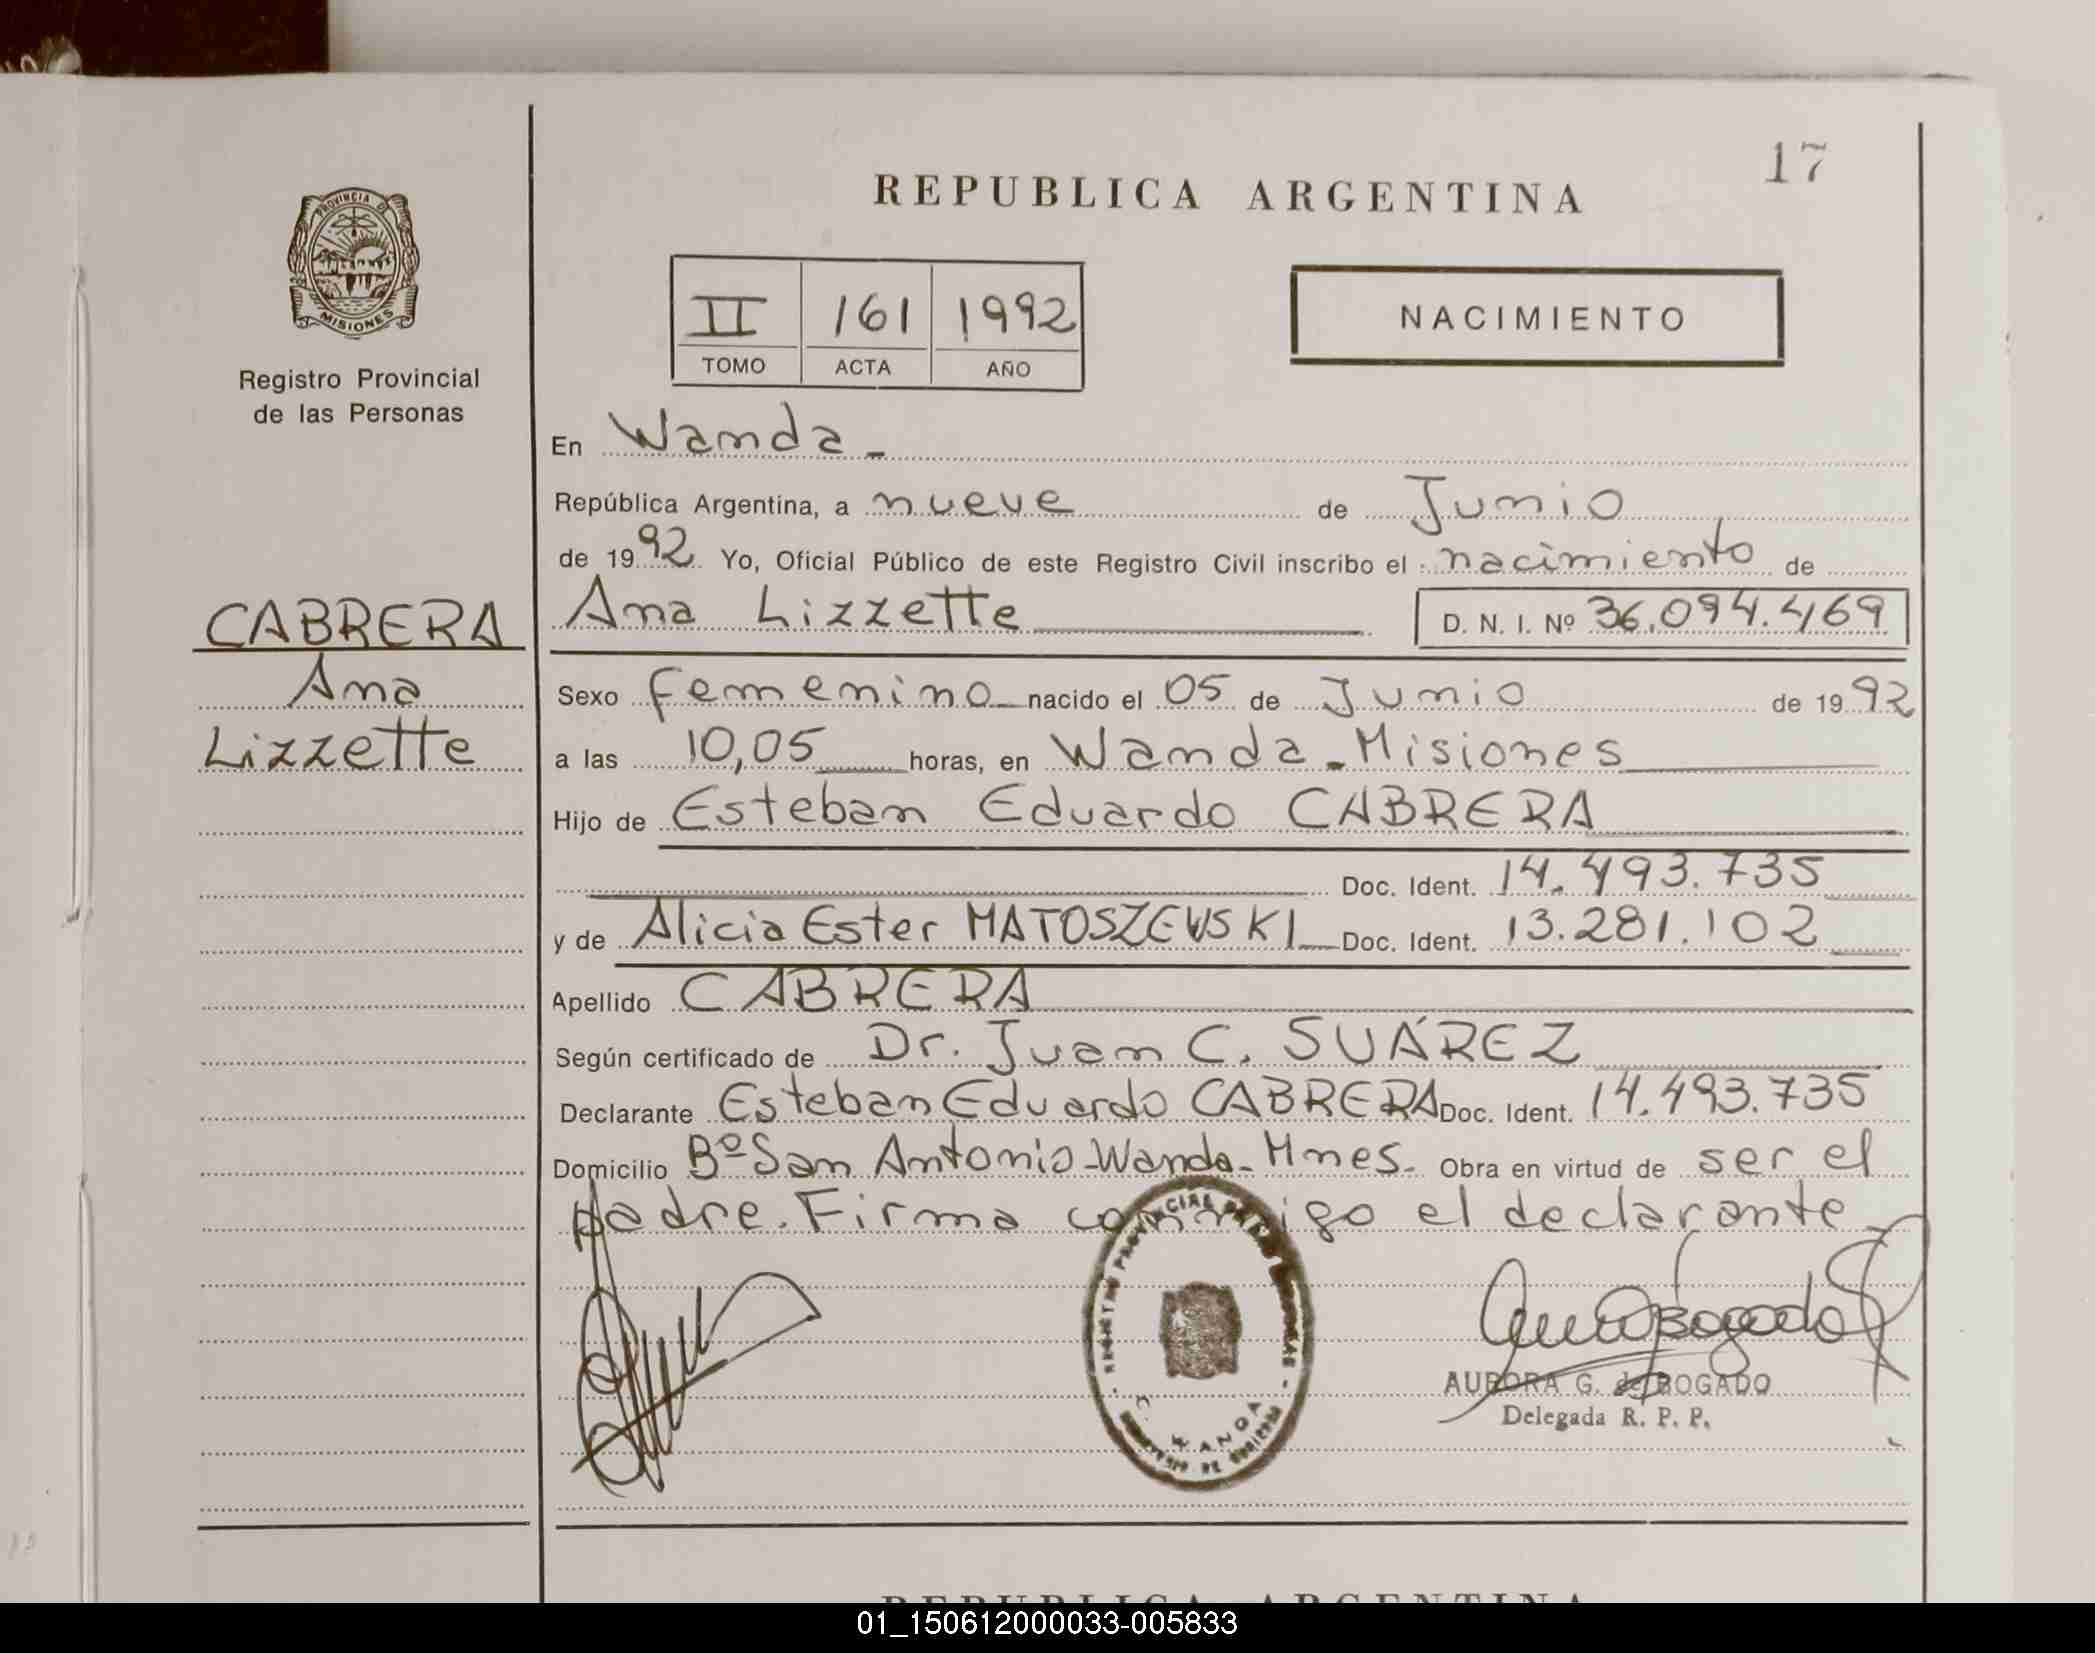 17
REPUBLICA ARGENTINA
PROVINCIA DE
MISIONES
Registro Provincial
de las Personas
II 161 1992
TOMO ACTA AÑO
NACIMIENTO
En Wanda-
República Argentina, a nueve de Junio
de 1992 Yo, Oficial Público de este Registro Civil inscribo el nacimiento de
Ana Lizzette D. N. I. Nº 36.094.469
CABRERA
Ana
Lizzette
Sexo femenino nacido el 05 de Junio de 1992
a las 10,05 horas, en Wanda-Misiones
Hijo de Esteban Eduardo CABRERA
Doc. Ident. 14.493.735
y de Alicia Ester MATOSZEWSKI Doc. Ident. 13.281.102
Apellido CABRERA
Según certificado de Dr. Juan C. SUÁREZ
Declarante Esteban Eduardo CABRERA Doc. Ident. 14.493.735
Domicilio Bº San Antonio-Wanda-Mnes. Obra en virtud de ser el
padre. Firma conmigo el declarante
AURORA G. de BOGADO
Delegada R. P. P.
REPUBLICA ARGENTINA
01_150612000033-005833